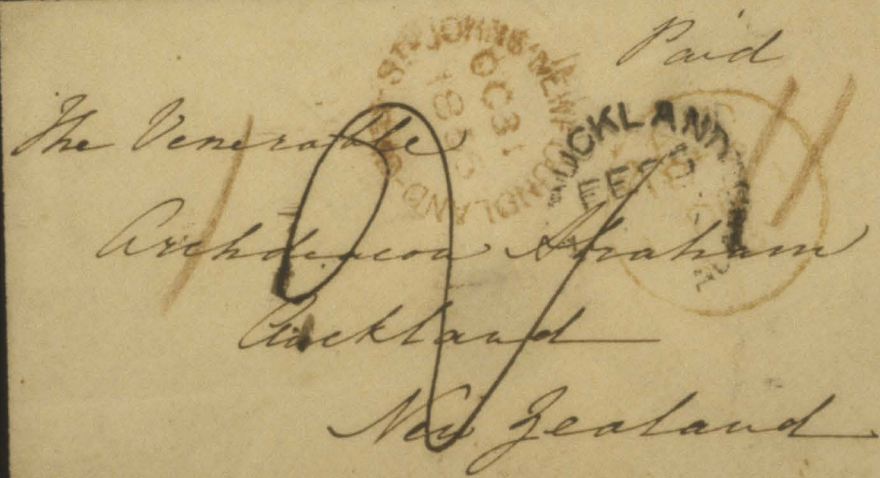 Paid
ST. JOHNS NEWFOUNDLAND
OC 31
AUCKLAND
The Venerable
Archdeacon Abraham
Auckland
New Zealand